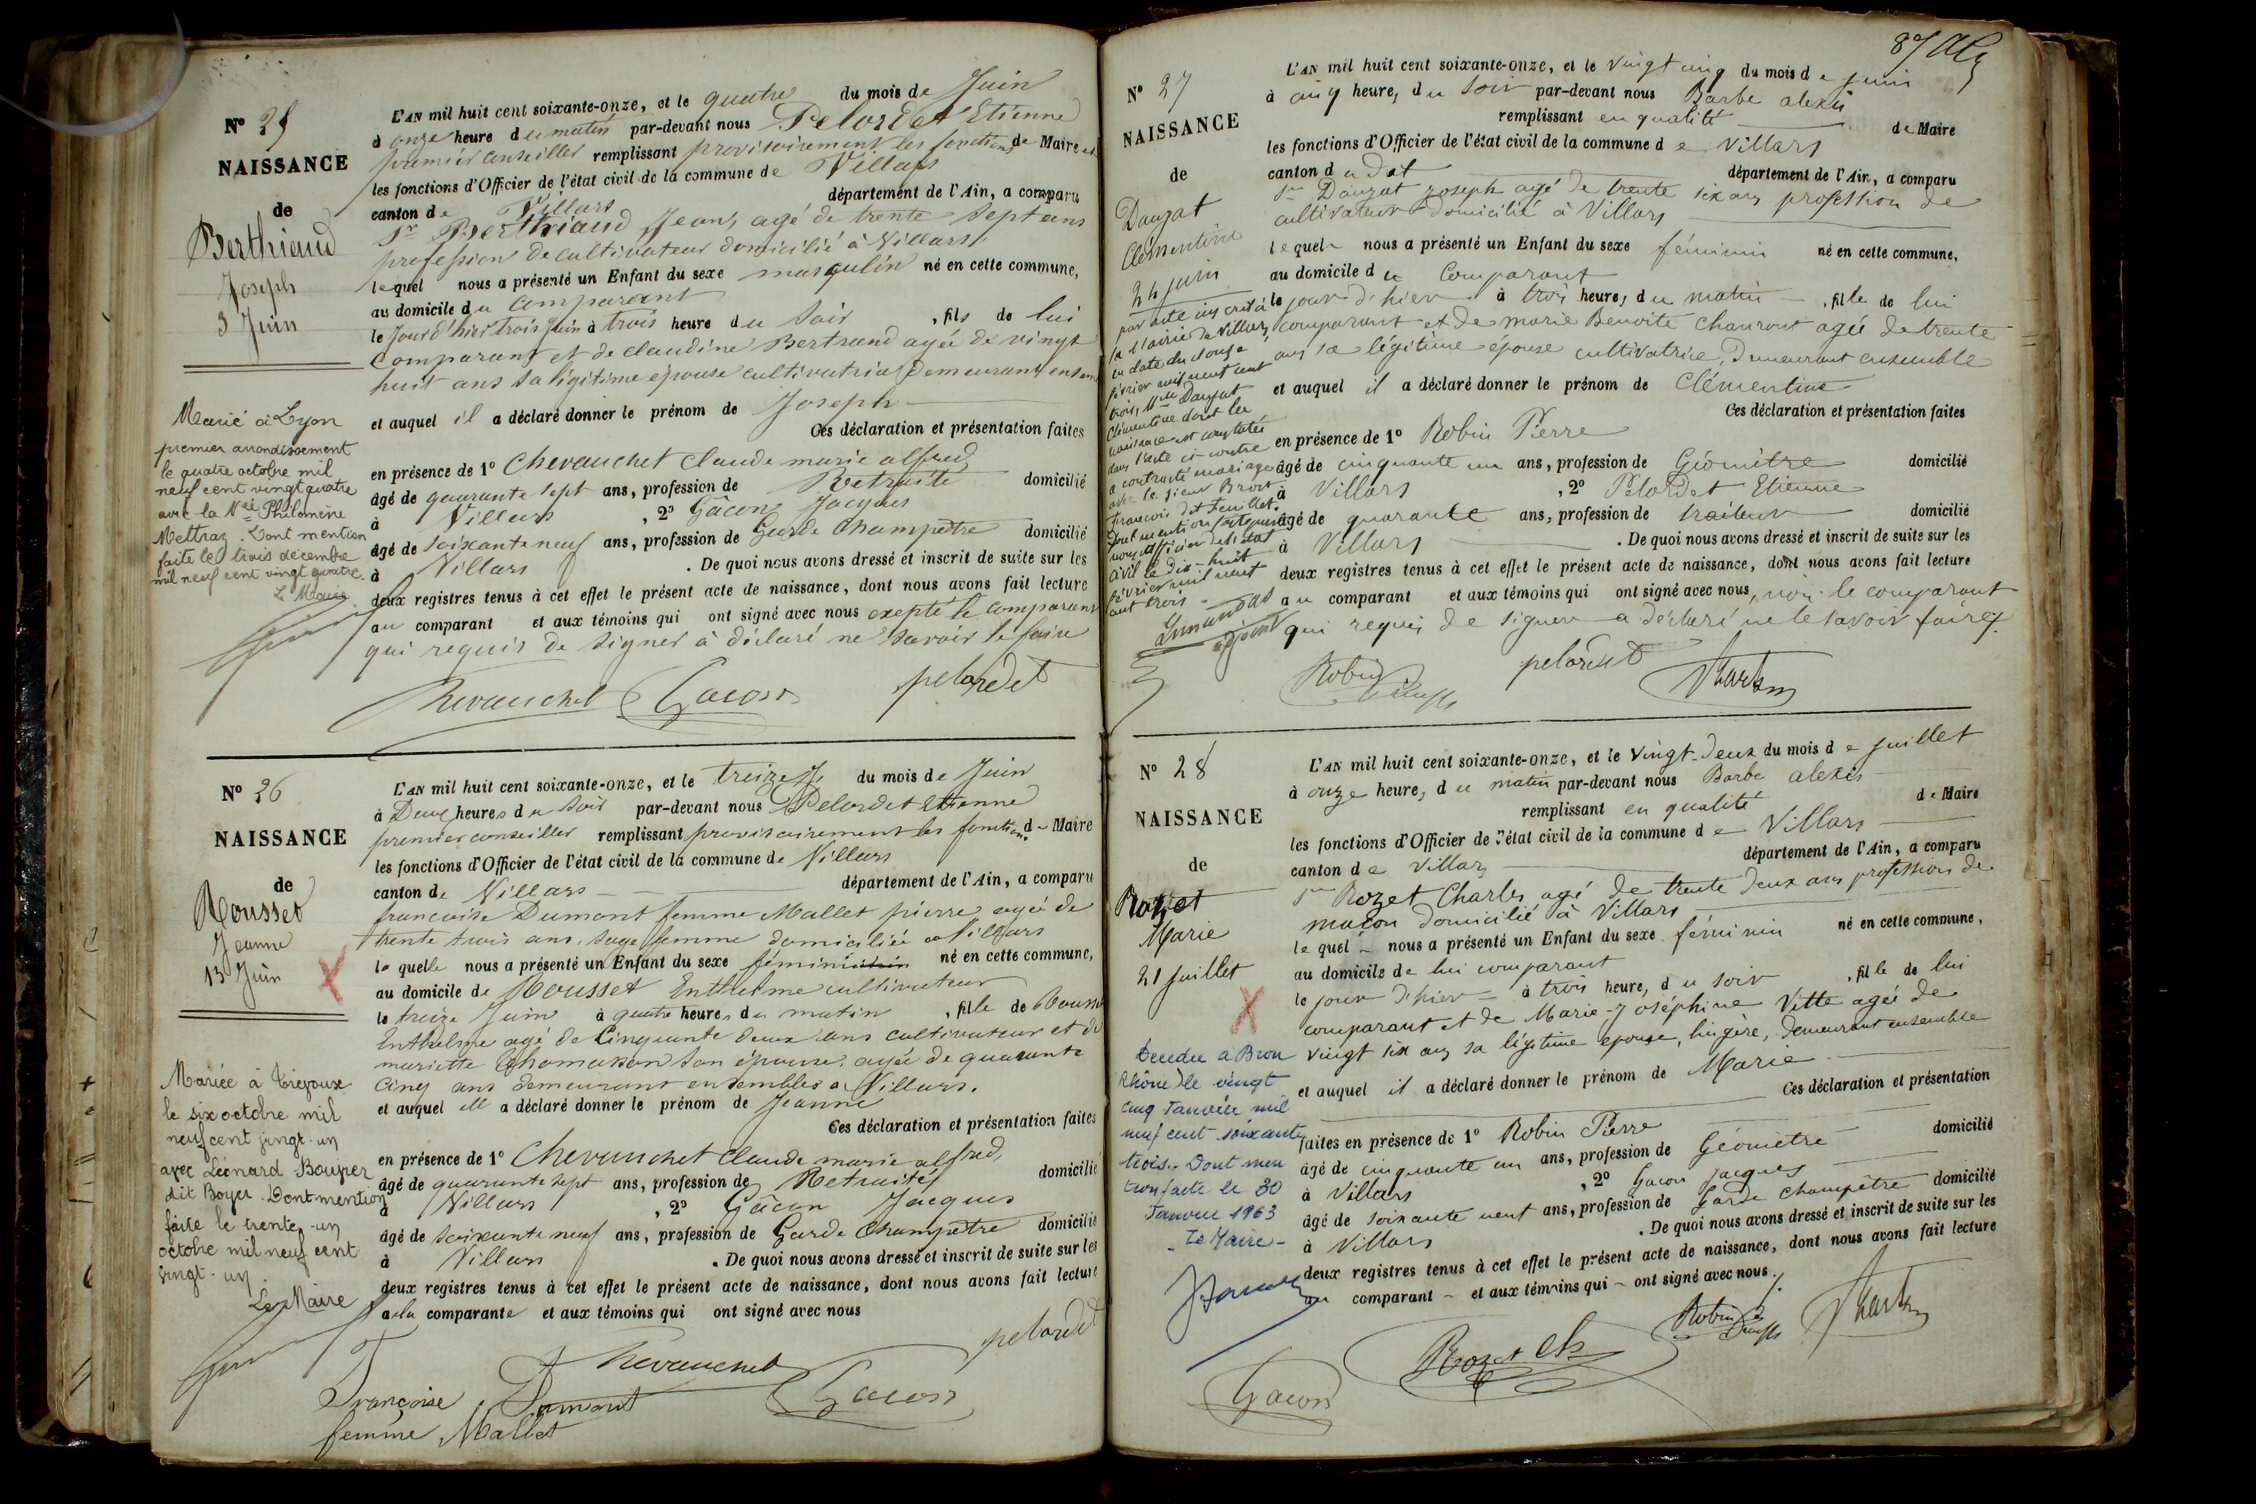 N° 25
NAISSANCE
de
Berthiaud
Joseph
3 Juin
L'AN mil huit cent soixante-onze, et le quatre du mois de Juin
à onze heure du matin par-devant nous Pelordet Etienne
premier conseiller remplissant provisoirement les fonctions de Maire et
les fonctions d'Officier de l'état civil de la commune de Villars
canton de Villars département de l'Ain, a comparu
Sr Berthiaud Jean, agé de trente sept ans
profession de cultivateur domicilié à Villars
lequel nous a présenté un Enfant du sexe masculin né en cette commune,
au domicile du comparant
le Jour d'hier trois Juin à trois heure du soir, fils de lui
Comparant et de claudine Bertrand agée de vingt
huit ans sa légitime épouse cultivatrice demeurant
et auquel il a déclaré donner le prénom de Joseph
Ces déclaration et présentation faites
en présence de 1° Chevauchet Claude marie alfred
âgé de quarante sept ans, profession de Retraité domicilié
à Villars, 2° Gâcon Jacques
âgé de soixante neuf ans, profession de Garde Champêtre domicilié
à Villars. De quoi nous avons dressé et inscrit de suite sur les
deux registres tenus à cet effet le présent acte de naissance, dont nous avons fait lecture
au comparant et aux témoins qui ont signé avec nous exepté le comparant
qui requis de signer à déclaré ne savoir le faire
Chevauchet Gacon pelordet
Marié à Lyon
premier arrondissement
le quatre octobre mil
neuf cent vingt quatre
avec la Vée Philomène
Mettraz. Dont mention
faite le trois décembre
mil neuf cent vingt quatre.
Le Maire
N° 26
NAISSANCE
de
Rousset
Jeanne
13 Juin
L'AN mil huit cent soixante-onze, et le treize du mois de Juin
à Deux heures du soir par-devant nous Pelordet Etienne
premier conseiller remplissant provisoirement les fonctions de Maire
les fonctions d'Officier de l'état civil de la commune de Villars
canton de Villars département de l'Ain, a comparu
francoise Dumont femme Mallet pierre agée de
trente trois ans, sage femme domiciliée a Villars
laquelle nous a présenté un Enfant du sexe féminin né en cette commune,
au domicile de Rousset Enthelme cultivateur
le treize Juin à quatre heures du matin, fille de Rousset
Enthelme agé de Cinquante deux ans cultivateur et de
mariette Thomasson son épouse, agée de quarante
Cinq ans demeurant ensembles a Villars.
et auquel elle a déclaré donner le prénom de Jeanne
Ces déclaration et présentation faites
en présence de 1° Chevauchet Claude marie alfred
âgé de quarante sept ans, profession de Retraité domicilié
à Villars, 2° Gâcon Jacques
âgé de soixante neuf ans, profession de Garde Champêtre domicilié
à Villars. De quoi nous avons dressé et inscrit de suite sur les
deux registres tenus à cet effet le présent acte de naissance, dont nous avons fait lecture
a la comparante et aux témoins qui ont signé avec nous
Chevauchet pelordet
Françoise Dumont Gacon
femme Mallet
Mariée à Trévoux
le six octobre mil
neuf cent vingt-un
avec Léonard Bouyer
dit Boyer. Dont mention
faite le trente-un
octobre mil neuf cent
vingt-un
Le Maire
87
N° 27
NAISSANCE
de
Dauzat
Clémentine
24 juin
L'AN mil huit cent soixante-onze, et le vingt cinq du mois de juin
à cinq heure, du soir par-devant nous Barbe alexis
remplissant en qualité de Maire
les fonctions d'Officier de l'état civil de la commune de Villars
canton du dit département de l'Ain, a comparu
Sr Dauzat joseph agé de trente six ans profession de
cultivateur domicilié à Villars
lequel nous a présenté un Enfant du sexe féminin né en cette commune,
au domicile du Comparant
le jour d'hier à trois heure, du matin, fille de lui
comparant et de marie Benoite Chauront agée de trente
ans sa légitime épouse cultivatrice, Demeurant ensemble
et auquel il a déclaré donner le prénom de Clémentine
Ces déclaration et présentation faites
en présence de 1° Robin Pierre
âgé de cinquante un ans, profession de Géomètre domicilié
à Villars, 2° Pelordet Etienne
âgé de quarante ans, profession de traiteur domicilié
à Villars. De quoi nous avons dressé et inscrit de suite sur les
deux registres tenus à cet effet le présent acte de naissance, dont nous avons fait lecture
au comparant et aux témoins qui ont signé avec nous, non le comparant
qui requis de signer a déclaré ne le savoir faire
Robin pelordet
par acte inscrit à
la Mairie de Villars
en date du douze
février mil neuf cent
trois, Mlle Dauzat
Clémentine dont la
naissance est constatée
dans l'acte ci-contre
a contracté mariage
avec le sieur Brost
François dit Feuillet.
Dont mention faite par
nous officier de l'état
civil le dix-huit
février mil neuf
cent trois
adjoint
N° 28
NAISSANCE
de
Rozet
Marie
21 juillet
L'AN mil huit cent soixante-onze, et le vingt-deux du mois de juillet
à onze heure, du matin par-devant nous Barbe alexis
remplissant en qualité de Maire
les fonctions d'Officier de l'état civil de la commune de Villars
canton de Villars département de l'Ain, a comparu
Sr Rozet Charles agé de trente deux ans profession de
maçon domicilié à Villars
lequel nous a présenté un Enfant du sexe féminin né en cette commune,
au domicile de lui comparant
le jour d'hier à trois heure, du soir, fille de lui
comparant et de Marie-Joséphine Vitte agée de
vingt six ans sa légitime épouse, lingère, demeurant ensemble
et auquel il a déclaré donner le prénom de Marie
Ces déclaration et présentation
faites en présence de 1° Robin Pierre domicilié
âgé de cinquante un ans, profession de Géomètre
à Villars, 2° Gacon Jacques
âgé de soixante neuf ans, profession de Garde champêtre domicilié
à Villars. De quoi nous avons dressé et inscrit de suite sur les
deux registres tenus à cet effet le présent acte de naissance, dont nous avons fait lecture
au comparant et aux témoins qui ont signé avec nous.
Robin
Rozet Ch
Gacon
Décédée à Bron
(Rhône) le vingt
cinq Janvier mil
neuf cent soixante
trois.. Dont men
tion faite le 30
Janvier 1963
- Le Maire -